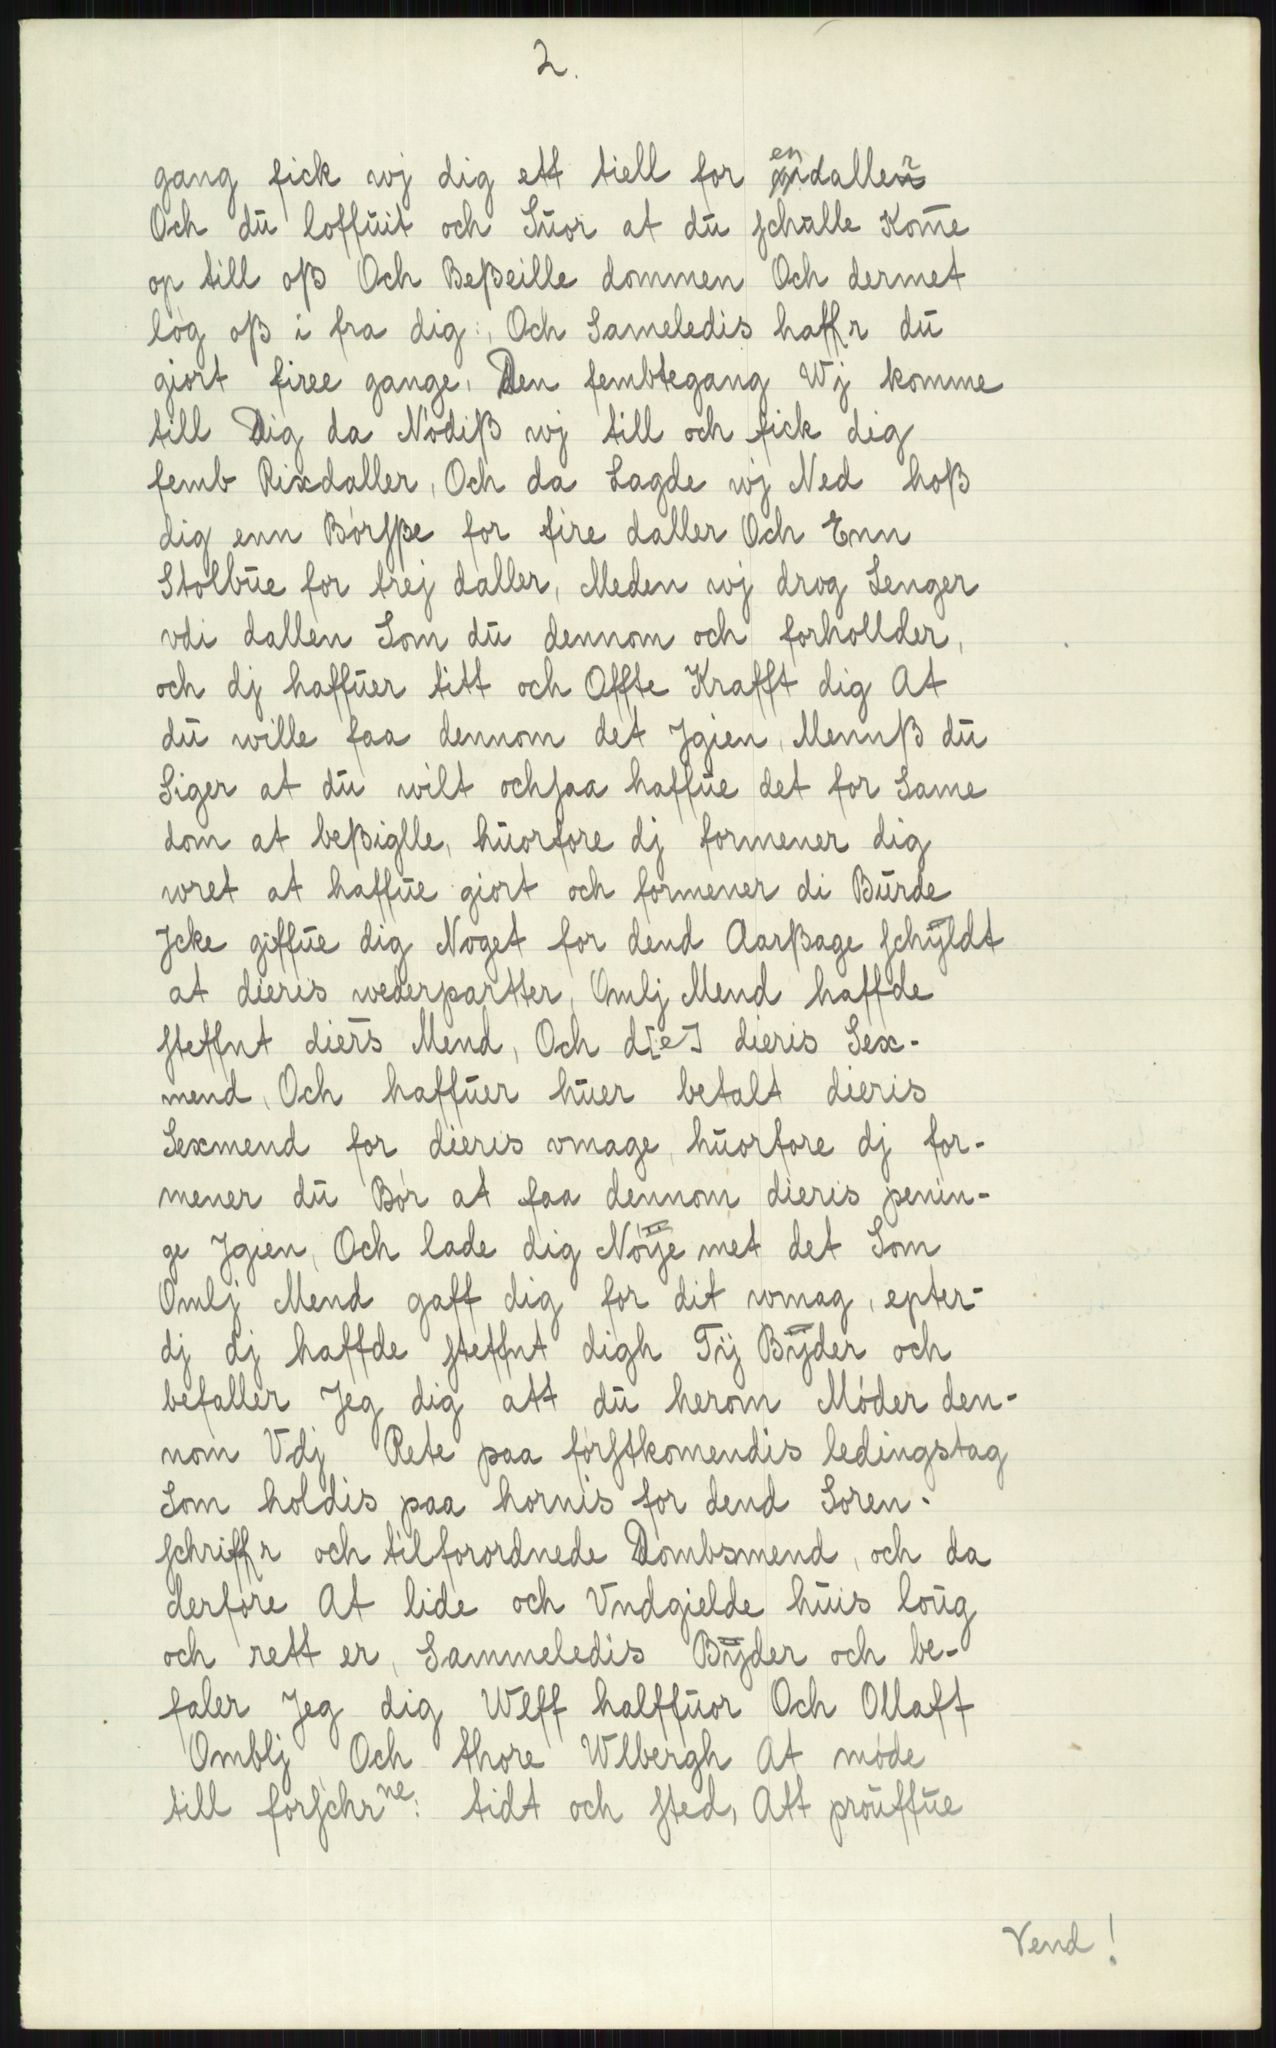 2.
gang fick wj dig ett tiell for en daller
Och dū loffūit och Sūor at dū schalle Kom̄e
op till oß Och Beßeille dommen Och dermet
lóg oß i fra dig:, Och Sameledis haffr dū
giort firee gange, Den fembtegang Wj komme
till Dig da Nódiß wj till och fick dig
femb Rixdaller, Och da Lagde wj Ned hoß
dig enn Bórsße for fire daller Och Enn
Stolbūe for trej daller, Meden wj drog Lenger
vdi dallen Som dū dennom och forhollder,
och dj haffūer titt och Offte Krafft dig At
dū wille faa dennom det Jgien, Mennß dū
Siger at dū wilt ochsaa haffūe det for Same
dom at beßiglle, hūorfore dj formener dig
wret at haffūe giort och formener di Būrde
Jcke giffūe dig Noget for dend Aarßage schÿldt
at dieris wederpartter, Omlj Mend haffde
steffnt dier̄s Mend, Och d[e] dieris Sex-
mend, Och haffūer hūer betalt dieris
Sexmend for dieris vmage, hūorfore dj for-
mener dū Bór at faa dennom dieris penin-
ge Jgien, Och lade dig Nóÿe met det Som
Omlj Mend gaff dig for dit wmag, epter-
dj dj haffde steffnt digh Tij Bÿder och
befaller Jeg dig att dū herom Móder den-
nom Vdj Rete paa fórstkomendis ledingstag
Som holdis paa hornis for dend Soren-
schriffr och tilforordnede Dombsmend, och da
derfore At lide och Vndgielde hūis loūg
och rett er, Sammeledis Bÿder och be-
faler Jeg dig Wlff halffūor Och Ollaff
Omblj Och thore Wlbergh At móde
till forschrne: tidt och sted, Att proūffūe
Vend!